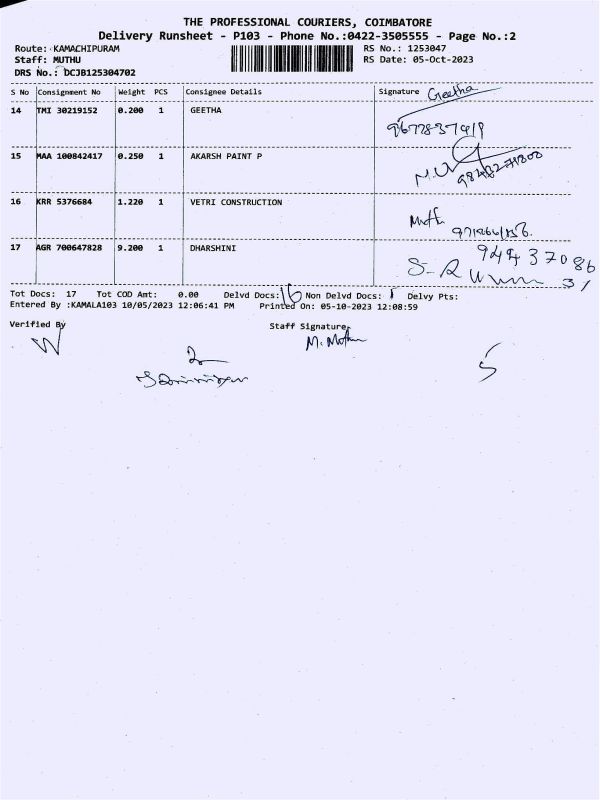 THE PROFESSIONAL COURIERS, COIMBATORE
Delivery Runsheet - P103 - Phone No.:0422-3505555 - Page No.:2
Route: KAMACHIPURAM RS No.: 1253047
Staff: MUTHU RS Date: 05-Oct-2023
DRS No.: DCJB125304702
S No Consignment No Weight PCS Consignee Details Signature Geetha
14 TMI 30219152 0.200 1 GEETHA
15 MAA 100842417 0.250 1 AKARSH PAINT P
16 KRR 5376684 1.220 1 VETRI CONSTRUCTION
17 AGR 700647828 9.200 1 DHARSHINI
Tot Docs: 17 Tot COD Amt: 0.00 Delvd Docs: 16 Non Delvd Docs: 1 Delvy Pts:
Entered By :KAMALA103 10/05/2023 12:06:41 PM Printed On: 05-10-2023 12:08:59
Verified By Staff Signature